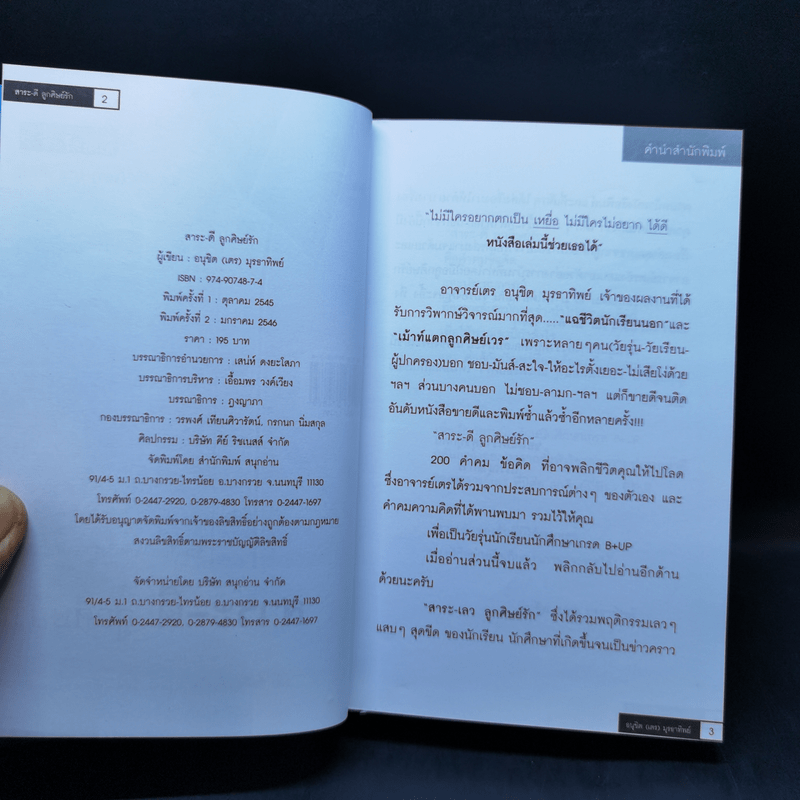 สาระ-ดี ลูกศิษย์รัก 2
สาระ-ดี ลูกศิษย์รัก
ผู้เขียน : อนุชิต (เตร) มุรธาทิพย์
ISBN : 974-90748-7-4
พิมพ์ครั้งที่ 1 : ตุลาคม 2545
พิมพ์ครั้งที่ 2 : มกราคม 2546
ราคา : 195 บาท
บรรณาธิการอำนวยการ : เสน่ห์ ดงยะโสภา
บรรณาธิการบริหาร : เอื้อมพร วงค์เวียง
บรรณาธิการ : ฎงญาภา
กองบรรณาธิการ : วรพงศ์ เทียนศิวารัตน์, กรกนก นิ่มสกุล
ศิลปกรรม : บริษัท คีย์ ริชเนสส์ จำกัด
จัดพิมพ์โดย สำนักพิมพ์ สนุกอ่าน
91/4-5 ม.1 ถ.บางกรวย-ไทรน้อย อ.บางกรวย จ.นนทบุรี 11130
โทรศัพท์ 0-2447-2920, 0-2879-4830 โทรสาร 0-2447-1697
โดยได้รับอนุญาตจัดพิมพ์จากเจ้าของลิขสิทธิ์อย่างถูกต้องตามกฎหมาย
สงวนลิขสิทธิ์ตามพระราชบัญญัติลิขสิทธิ์
จัดจำหน่ายโดย บริษัท สนุกอ่าน จำกัด
91/4-5 ม.1 ถ.บางกรวย-ไทรน้อย อ.บางกรวย จ.นนทบุรี 11130
โทรศัพท์ 0-2447-2920, 0-2879-4830 โทรสาร 0-2447-1697
คำนำสำนักพิมพ์
"ไม่มีใครอยากตกเป็น เหยื่อ ไม่มีใครไม่อยาก ได้ดี
หนังสือเล่มนี้ช่วยเธอได้"
อาจารย์เตร อนุชิต มุรธาทิพย์ เจ้าของผลงานที่ได้
รับการวิพากษ์วิจารณ์มากที่สุด....."แฉชีวิตนักเรียนนอก"และ
"เม้าท์แตกลูกศิษย์เวร" เพราะหลายๆคน(วัยรุ่น-วัยเรียน-
ผู้ปกครอง)บอก ชอบ-มันส์-สะใจ-ให้อะไรตั้งเยอะ-ไม่เสียโง่ด้วย
ฯลฯ ส่วนบางคนบอก ไม่ชอบ-ลามก-ฯลฯ แต่ก็ขายดีจนติด
อันดับหนังสือขายดีและพิมพ์ซ้ำแล้วซ้ำอีกหลายครั้ง!!!
"สาระ-ดี ลูกศิษย์รัก"
200 คำคม ข้อคิด ที่อาจพลิกชีวิตคุณให้ไปโลด
ซึ่งอาจารย์เตรได้รวมจากประสบการณ์ต่างๆ ของตัวเอง และ
คำคมความคิดที่ได้พานพบมา รวมไว้ให้คุณ
เพื่อเป็นวัยรุ่นนักเรียนนักศึกษาเกรด B+UP
เมื่ออ่านส่วนนี้จบแล้ว พลิกกลับไปอ่านอีกด้าน
ด้วยนะครับ
"สาระ-เลว ลูกศิษย์รัก" ซึ่งได้รวมพฤติกรรมเลวๆ
แสบๆ สุดขีด ของนักเรียน นักศึกษาที่เกิดขึ้นจนเป็นข่าวคราว
อนุชิต (เตร) มุรธาทิพย์ 3